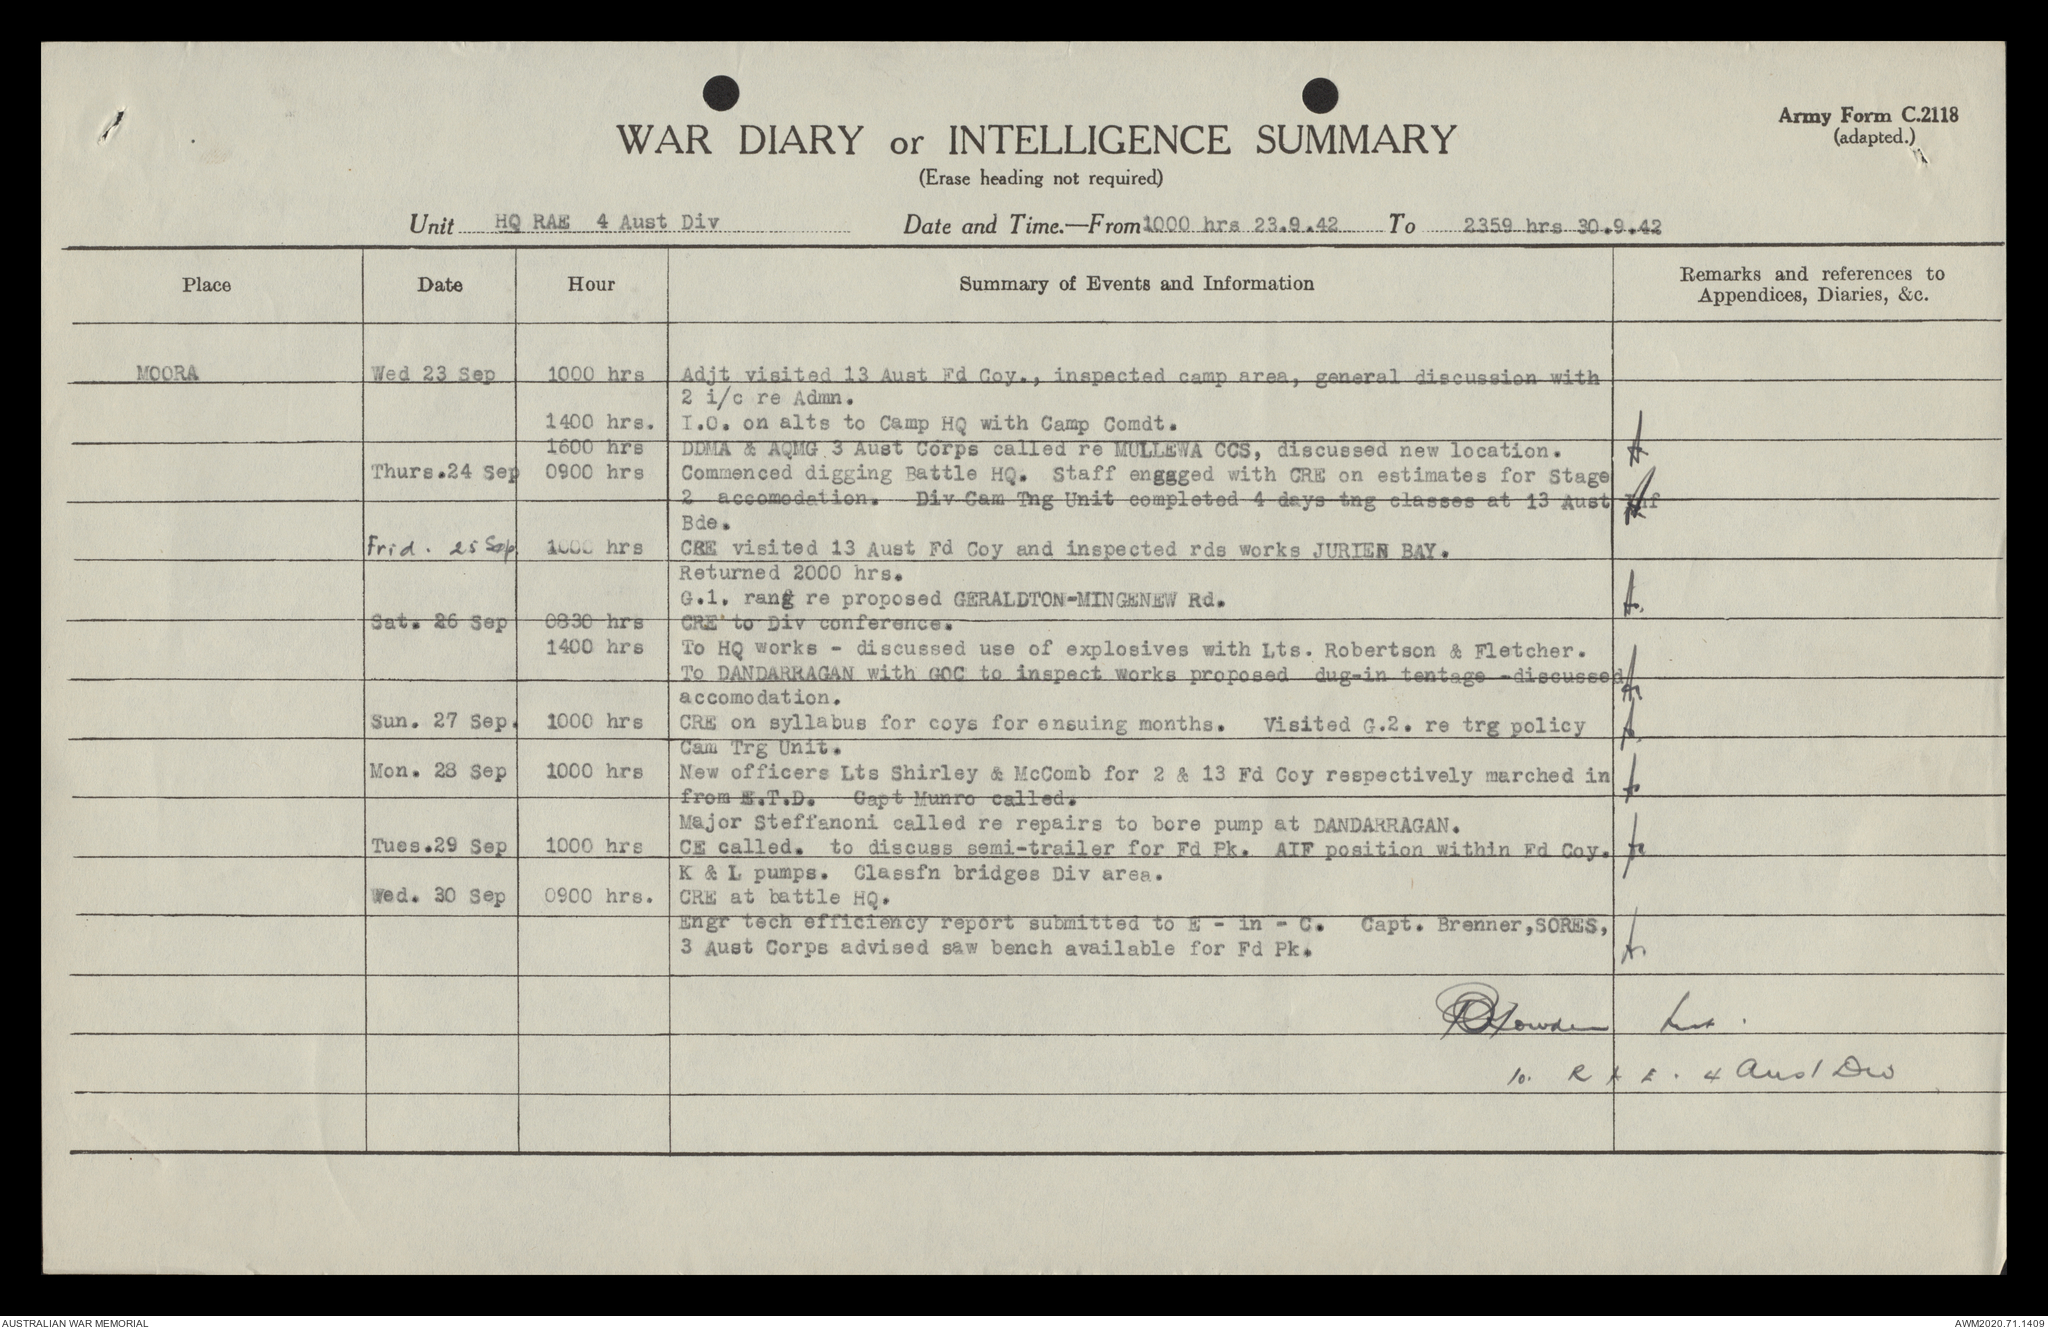 Army Form C.2118
(adapted.)
WAR DIARY or INTELLIGENCE SUMMARY
(Erase heading not required)
Unit HQ RAE 4 Aust Div Date and Time.—From 1000 hrs 23.9.42 To 2359 hrs 30.9.42
Place Date Hour Summary of Events and Information Remarks and references to
Appendices, Diaries, &c.
MOORA Wed 23 Sep 1000 hrs Adjt visited 13 Aust Fd Coy., inspected camp area, general discussion with
2 i/c re Admn.
1400 hrs. I.O. on alts to Camp HQ with Camp Comdt.
1600 hrs DDMA & AQMG 3 Aust Corps called re MULLEWA CCS, discussed new location.
Thurs.24 Sep 0900 hrs Commenced digging Battle HQ. Staff enggged with CRE on estimates for Stage
2 accomodation. Div Cam Tng Unit completed 4 days tng classes at 13 Aust Inf
Bde.
Frid. 25 Sep 1000 hrs CRE visited 13 Aust Fd Coy and inspected rds works JURIEN BAY.
Returned 2000 hrs.
G.1. rang re proposed GERALDTON-MINGENEW Rd.
Sat. 26 Sep 0830 hrs CRE to Div conference.
1400 hrs To HQ works - discussed use of explosives with Lts. Robertson & Fletcher.
To DANDARRAGAN with GOC to inspect works proposed dug-in tentage -discussed
accomodation.
Sun. 27 Sep. 1000 hrs CRE on syllabus for coys for ensuing months. Visited G.2. re trg policy
Cam Trg Unit.
Mon. 28 Sep 1000 hrs New officers Lts Shirley & McComb for 2 & 13 Fd Coy respectively marched in
from E.T.D. Capt Munro called.
Major Steffanoni called re repairs to bore pump at DANDARRAGAN.
Tues.29 Sep 1000 hrs CE called. to discuss semi-trailer for Fd Pk. AIF position within Fd Coy.
K & L pumps. Classfn bridges Div area.
Wed. 30 Sep 0900 hrs. CRE at battle HQ.
Engr tech efficiency report submitted to E - in - C. Capt. Brenner,SORES,
3 Aust Corps advised saw bench available for Fd Pk.
R A E. 4 Aust Div
AUSTRALIAN WAR MEMORIAL
AWM2020.71.1409